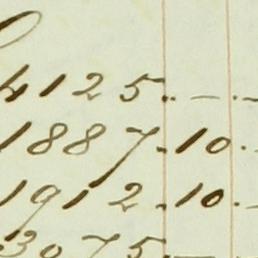 4125..—..—
1887.10..—
1912.10..—
3075.—